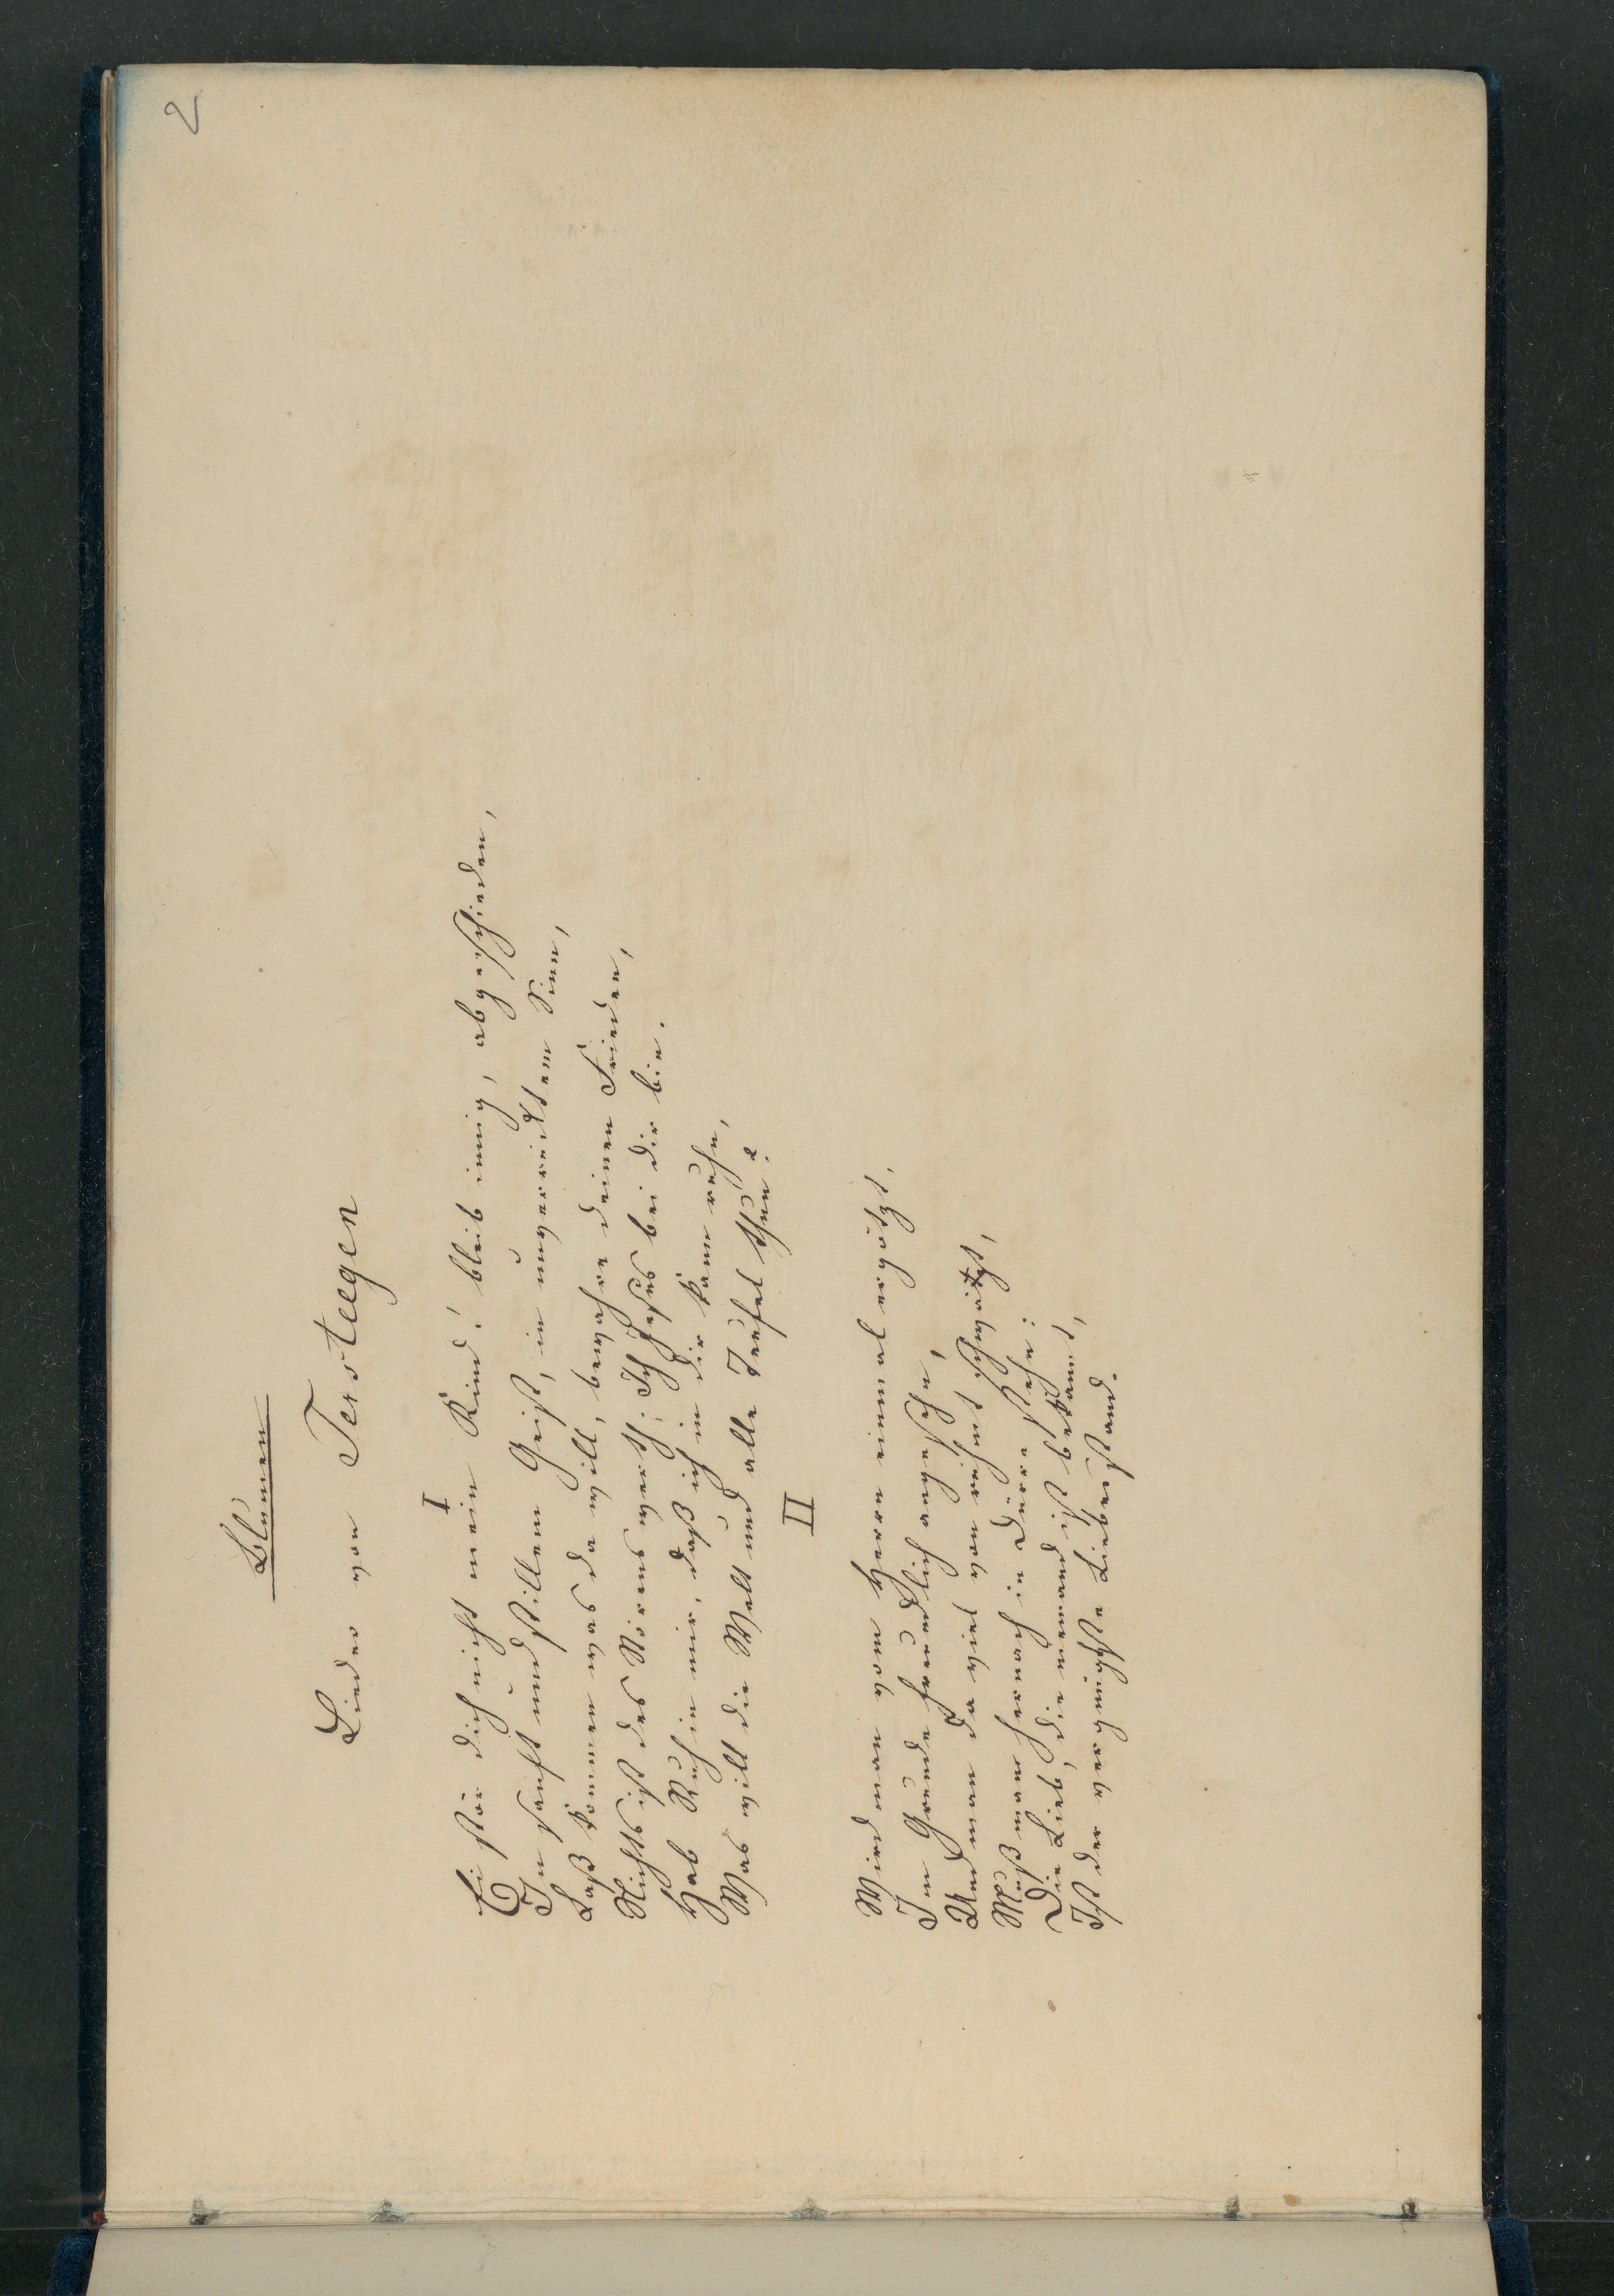 2
Blumen
Lieder von Tersteegen
I
Ei stör dich nicht mein Kind! bleib innig, abgeschieden,
In sanft und stillem Geist, in unverrücktem Sinn,
Laß kommen was da will, bewahre deinen Frieden,
Nichts ist des Störens werth: Ich Jesus bei dir bin.
Hab Ruh in mir, daß ich in dir kann ruhn,
Was will die Welt und alle Teufel thun?
II
Wird man vom Herrn einmal ergötzt,
Im Grunde freundlich angesehn,
Und man da viel von rühmt, schwätzt,
Muß man hernach in Dürre stehn:
Die Lieb, die niemand ist bekannt,
Ist der vergnügste Liebesstand.